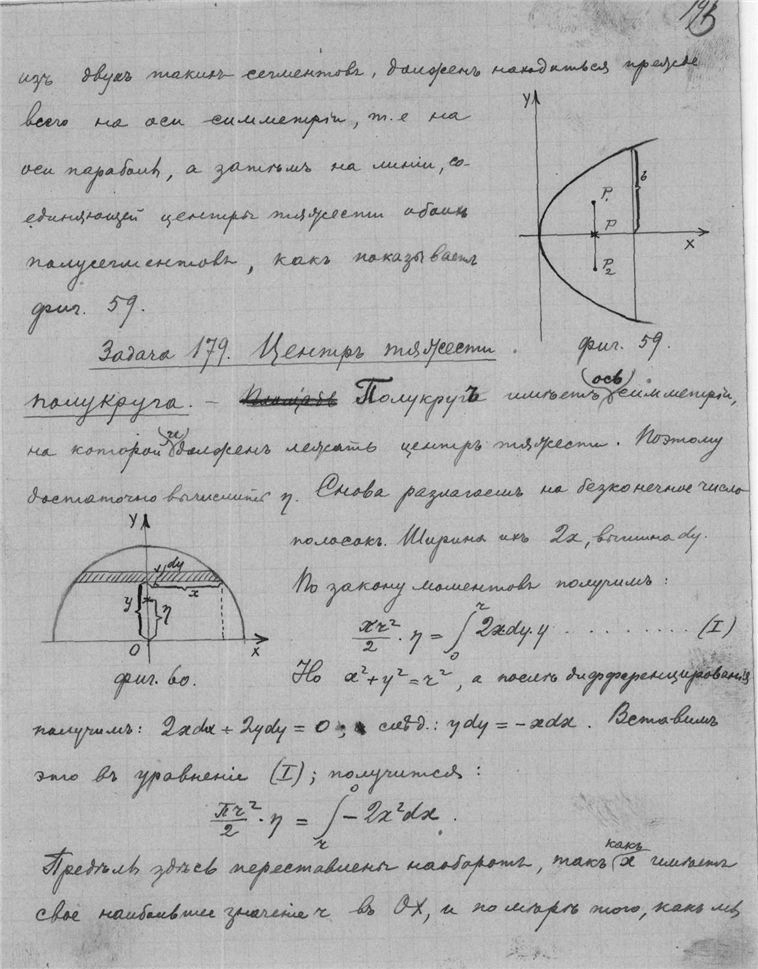 изъ двухъ такихъ сегментовъ, долженъ находиться прежде
всего на оси симметріи, т.е на
оси параболы, а затѣмъ на линіи, со-
единяющей центры тяжести обоихъ
полусегментовъ, какъ показываетъ
фиг. 59.
Y
P₁
P
P₂
b
X
фиг. 59.
Задача 179. Центръ тяжести
полукруга. — Площадь Полукругъ имѣетъ (ось) симметріи,
на которой и долженъ лежать центръ тяжести. Поэтому
достаточно вычислить η. Снова разлагаемъ на безконечное число
полосокъ. Ширина ихъ 2x, вышина dy.
По закону моментовъ получимъ:
πr²/2 · η = ∫₀ʳ 2xdy.y .......... (I)
Y
dy
x
y
η
O
X
фиг. 60.
Но x² + y² = r², а послѣ дифференцированія
получимъ: 2xdx + 2ydy = 0; слѣд.: ydy = -xdx. Вставимъ
это въ уравненіе (I); получится:
πr²/2 · η = ∫ᵣ⁰ - 2x²dx.
Предѣлы здѣсь переставлены наоборотъ, такъ какъ x имѣетъ
свое наибольшее значеніе r въ OX, и по мѣрѣ того, какъ мы